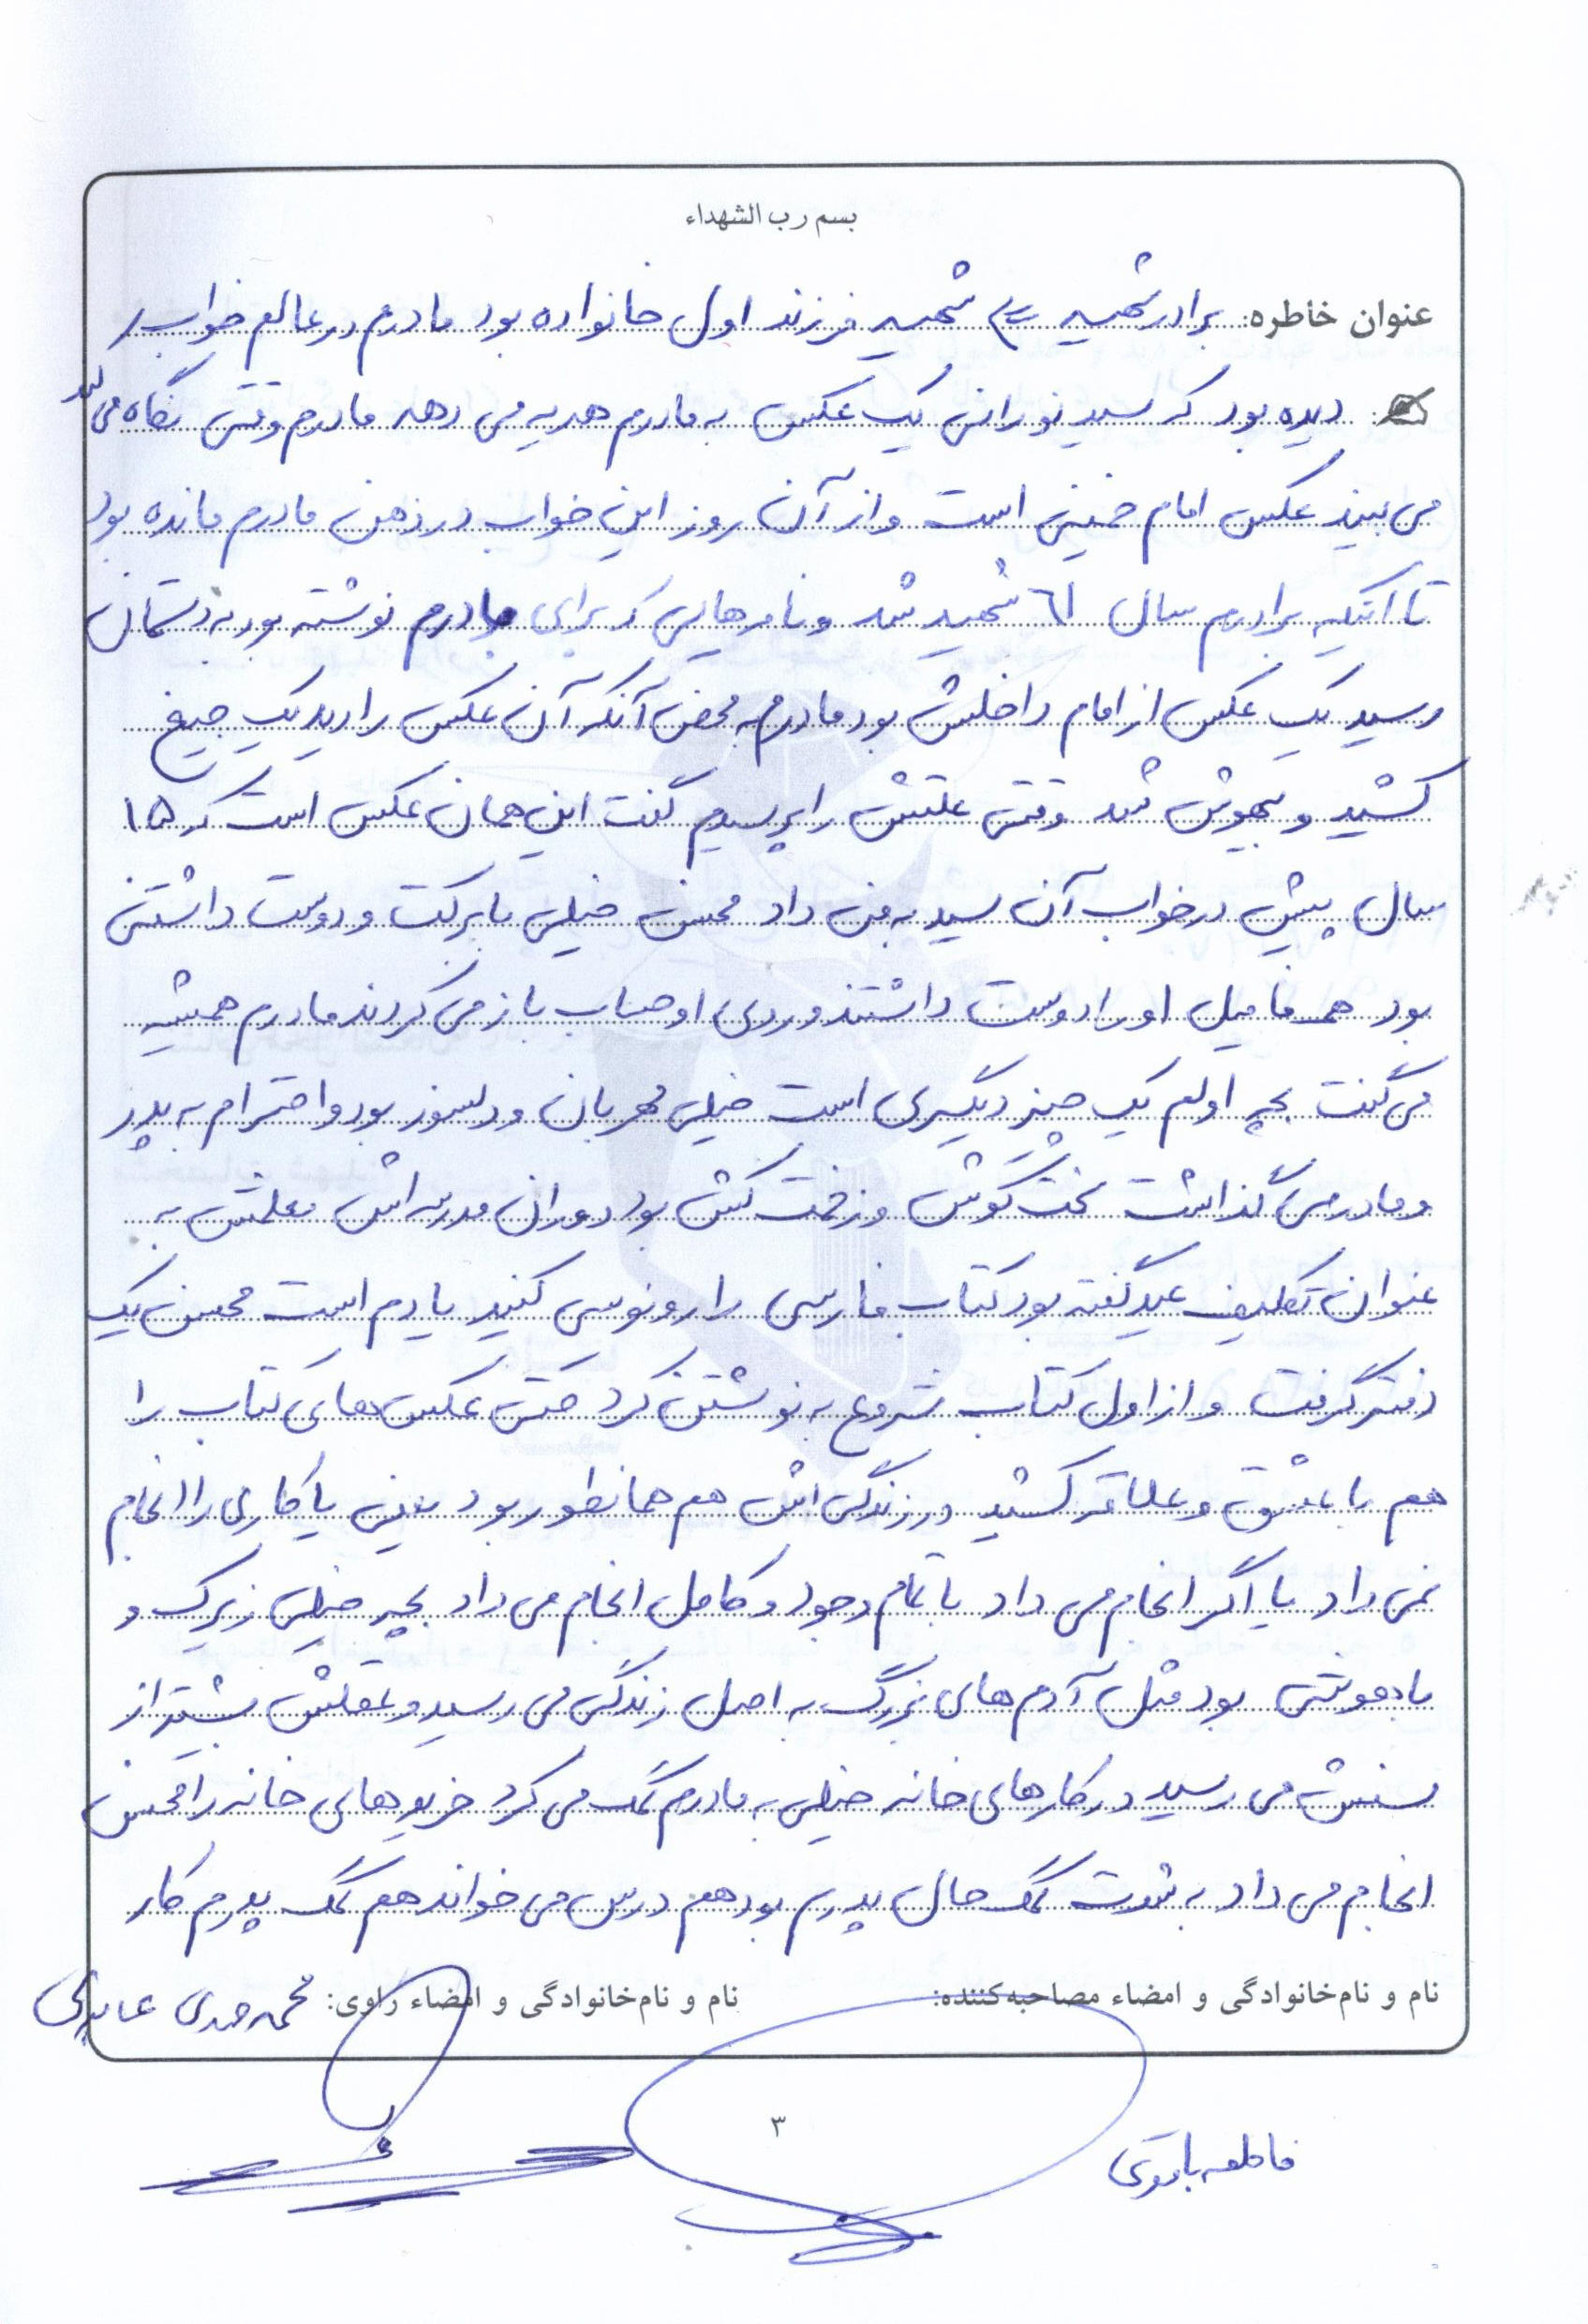 بسم رب الشهداء
عنوان خاطره: برادر شهید شهید فرزند اول خانواده بود مادرم در عالم خواب
دیده بود که سید نورانی یک عکس به مادرم هدیه می دهد مادرم وقتی نگاه می کند
می بیند عکس امام خمینی است و از آن روز این خواب در ذهن مادرم مانده بود
تا اینکه برادرم سال ٦١ شهید شد و نامه هایی که برای مادرم نوشته بود به دستمان
رسید یک عکس از امام داخلش بود مادرم به محض آنکه آن عکس را دید یک جیغ
کشید و بیهوش شد وقتی علتش را پرسیدیم گفت این همان عکس است که ۱۵
سال پیش در خواب آن سید به من داد محسن خیلی با برکت و دوست داشتنی
بود همه فامیل او را دوست داشتند و روی او حساب باز می کردند مادرم همیشه
می گفت بچه اولم یک چیز دیگری است خیلی مهربان و دلسوز بود و احترام به پدر
و مادر می گذاشت سخت کوش و زحمت کش بود دوران مدرسه اش معلمش به
عنوان تکلیف عید گفته بود کتاب فارسی را رونویسی کنید یادم است محسن یک
دفتر گرفت و از اول کتاب شروع به نوشتن کرد حتی عکس های کتاب را
هم با عشق و علاقه کشید در زندگی اش هم همانطور بود یعنی یا کاری را انجام
نمی داد یا اگر انجام می داد با تمام وجود و کامل انجام می داد بچه خیلی زیرک و
باهوشی بود مثل آدم های بزرگ به اصل زندگی می رسید و عقلش بیشتر از
سنش می رسید در کارهای خانه خیلی به مادرم کمک می کرد خریدهای خانه را محسن
انجام می داد به شدت کمک حال پدرم بود هم درس می خواند هم کمک پدرم کار
نام و نام‌خانوادگی و امضاء مصاحبه‌کننده: نام و نام‌خانوادگی و امضاء راوی: محمد مهدی
۳
فاطمه